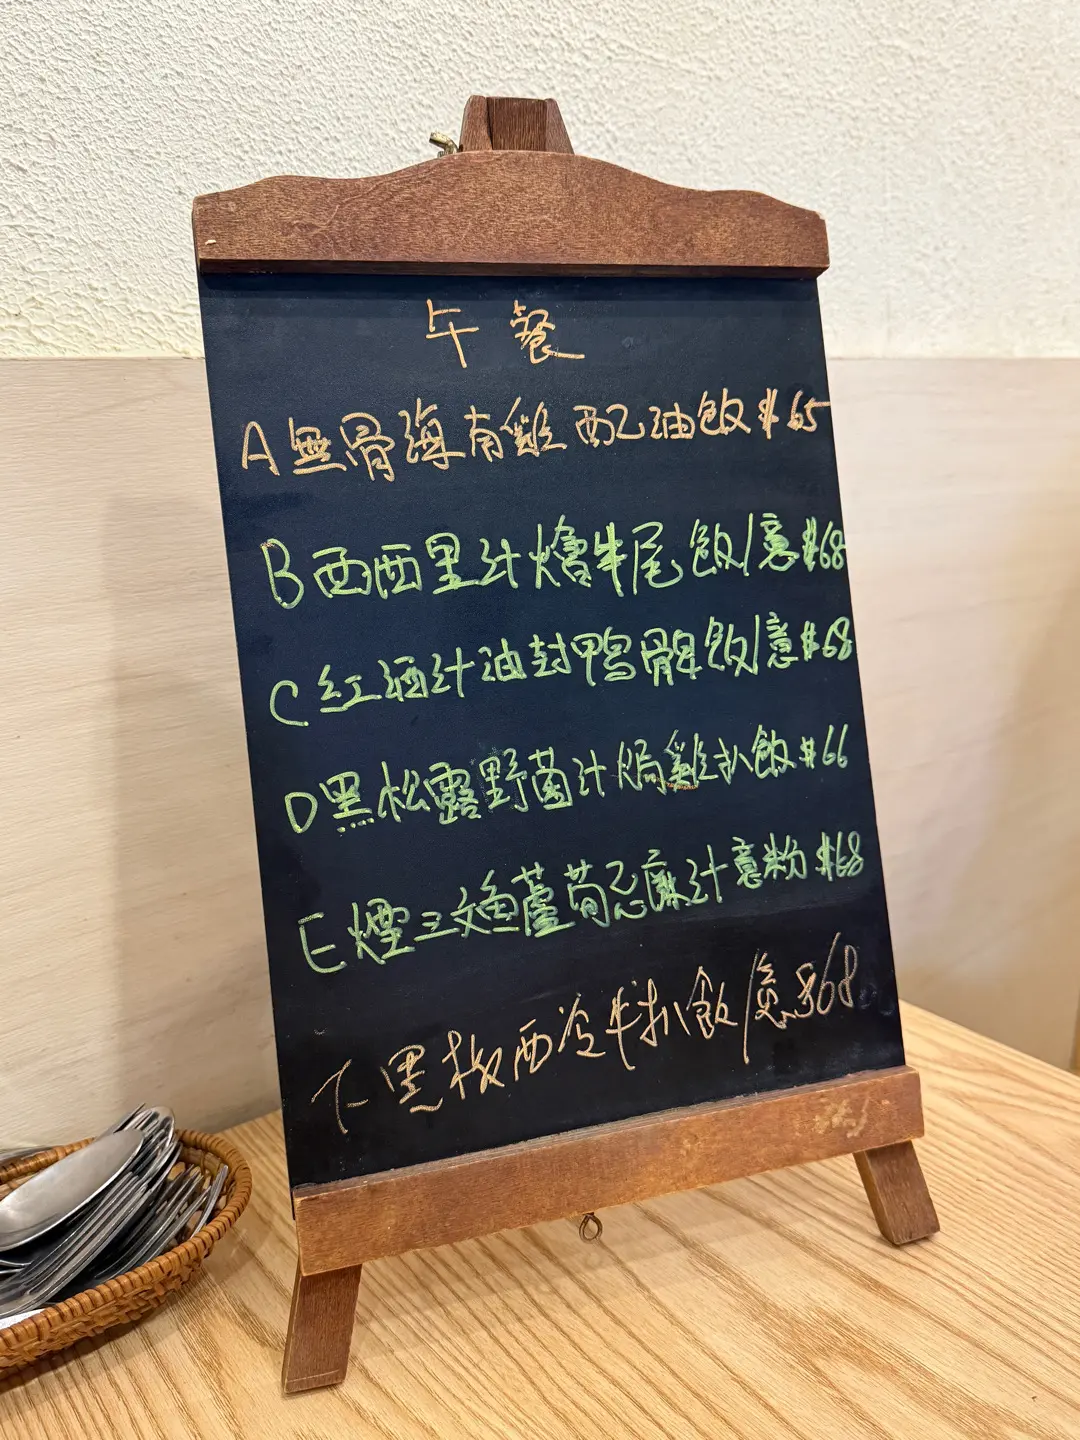 午餐
A 無骨海南雞配油飯 $65
B 西西里汁燴牛尾飯/意 $68
C 紅酒汁油封鴨髀飯/意 $68
D 黑松露野菌汁焗雞扒飯 $66
E 煙三文魚蘆荀忌廉汁意粉 $68
F 黑椒西冷牛扒飯/意 $68